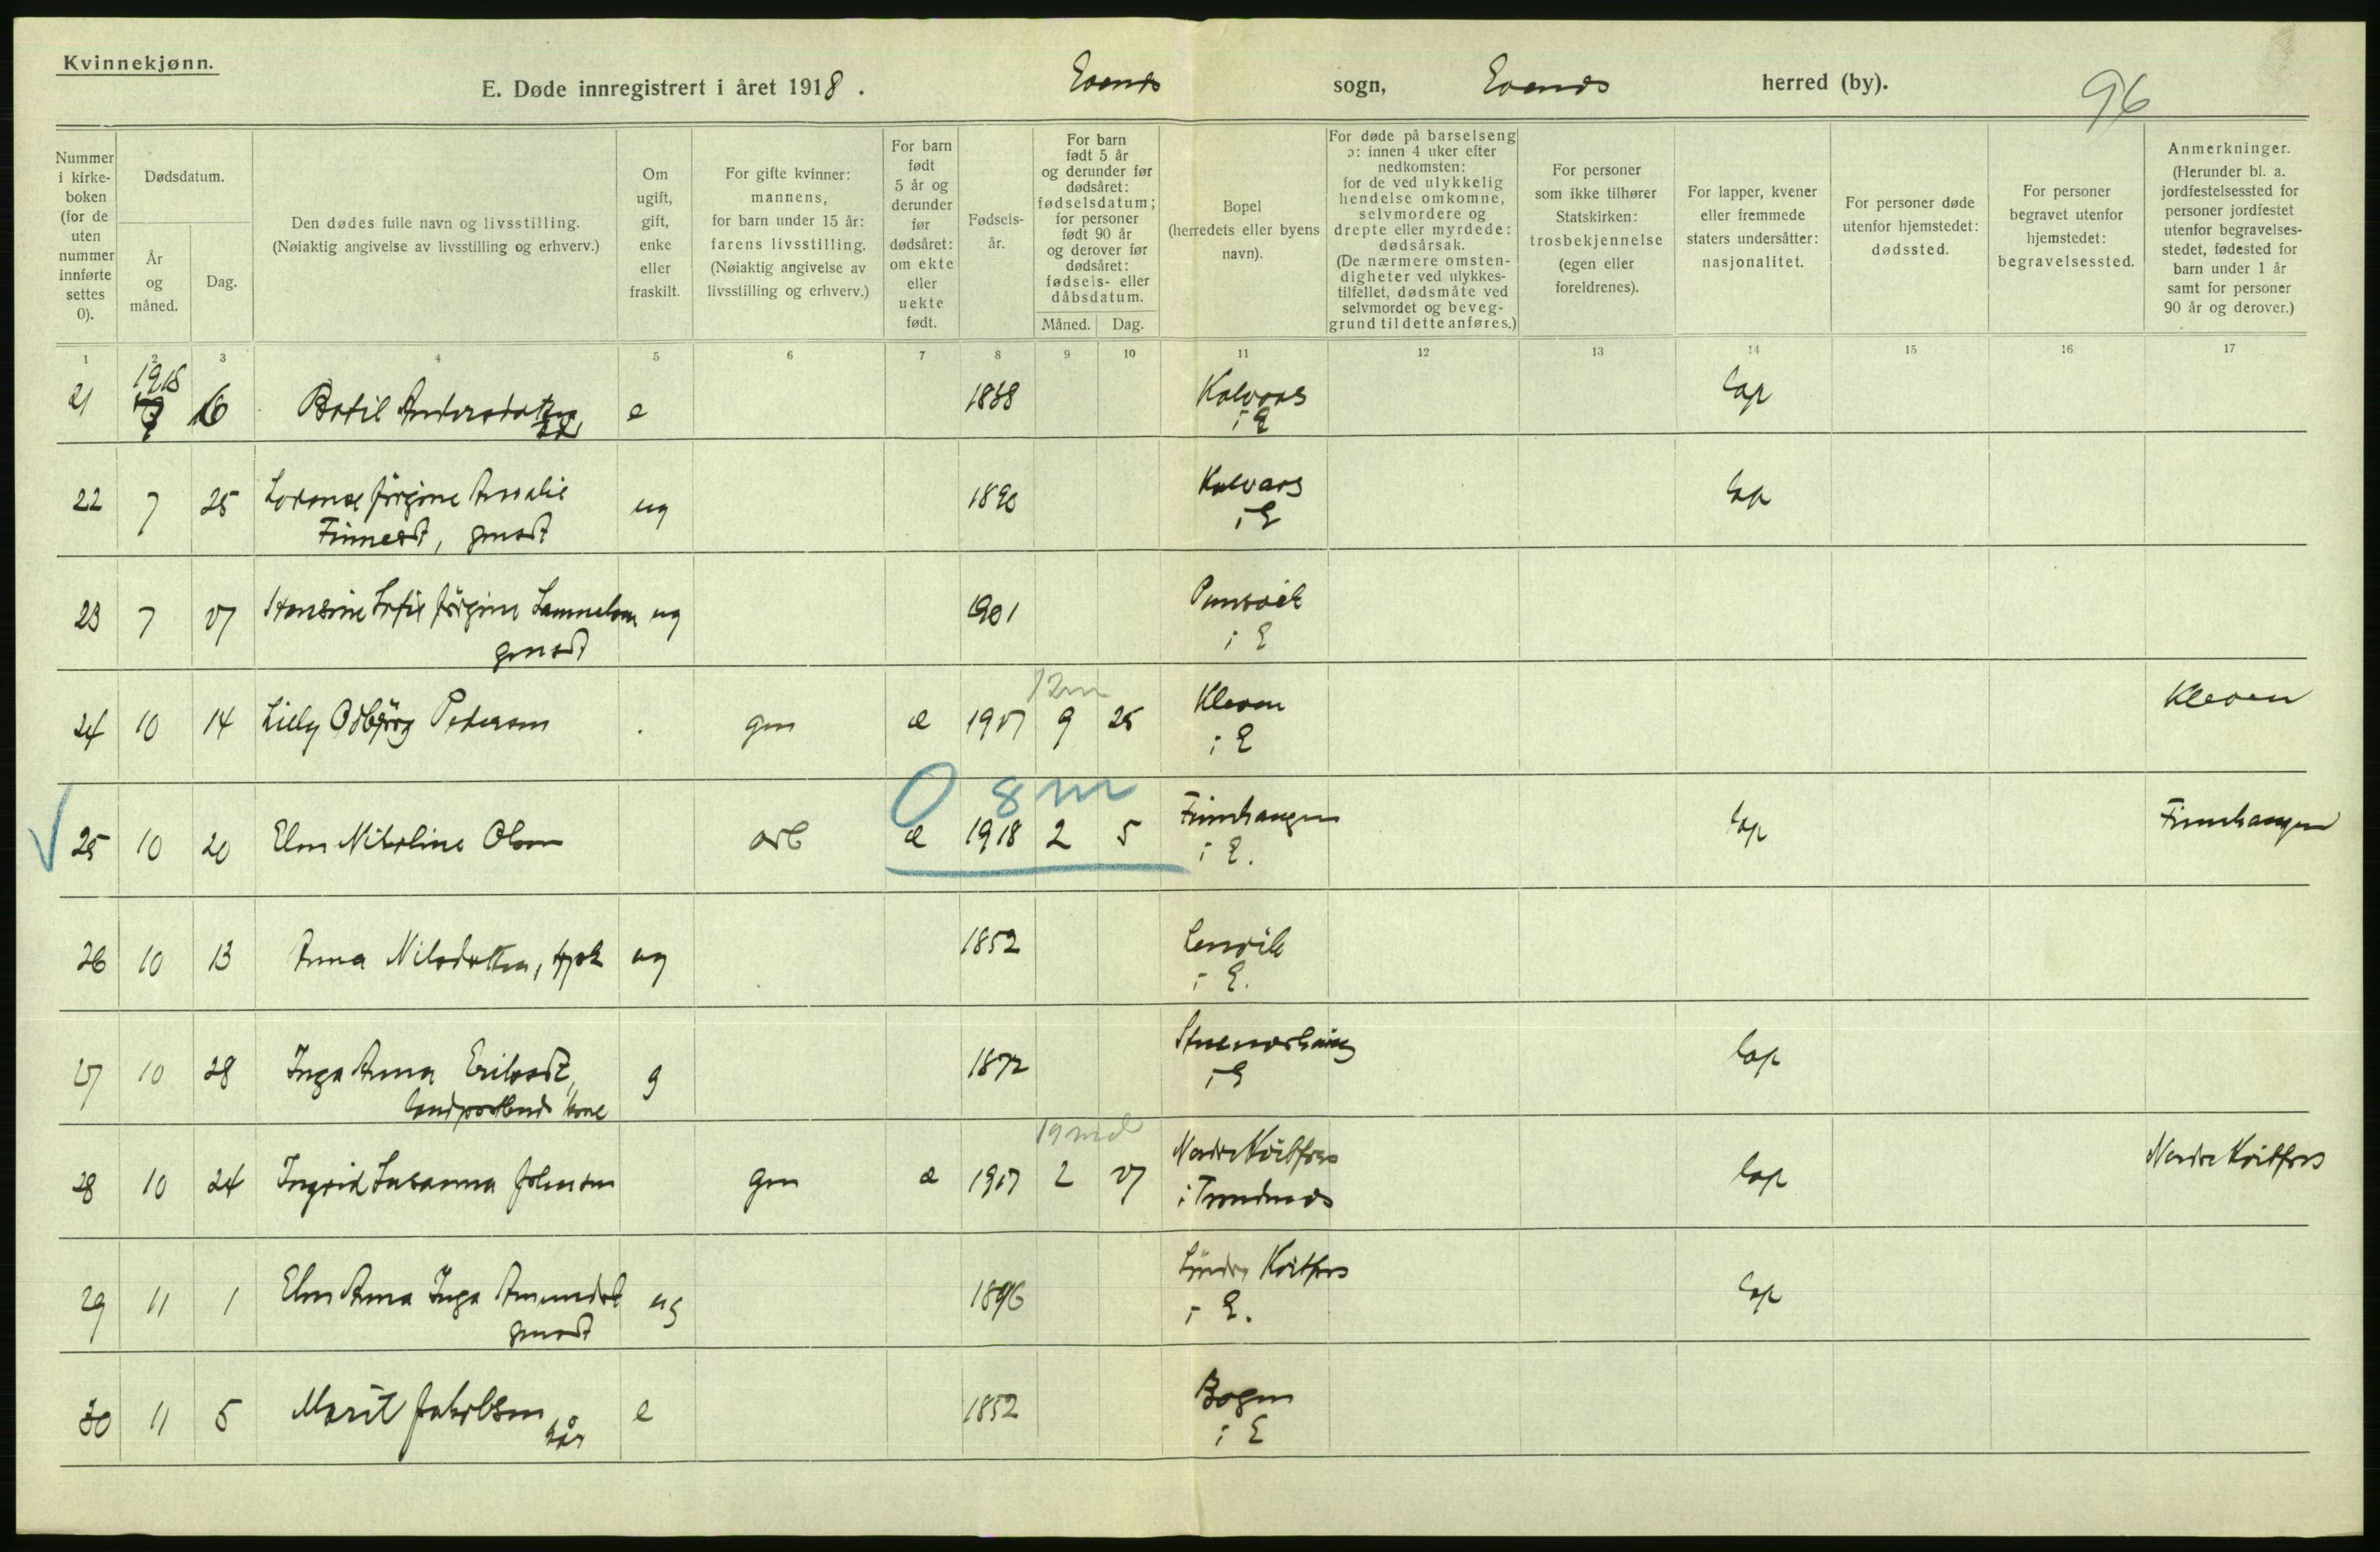 Kvinnekjønn.
E. Døde innregistrert i året 1918. Evenes sogn, Evenes herred (by). 96
Nummer i kirkeboken (for de uten nummer innførte settes 0).
Dødsdatum.
År og måned.
Dag.
Den dødes fulle navn og livsstilling.
(Nøiaktig angivelse av livsstilling og erhverv.)
Om ugift, gift, enke eller fraskilt.
For gifte kvinner: mannens, for barn under 15 år: farens livsstilling.
(Nøiaktig angivelse av livsstilling og erhverv.)
For barn født 5 år og derunder før dødsåret: om ekte eller uekte født.
Fødselsår.
For barn født 5 år og derunder før dødsåret: fødselsdatum; for personer født 90 år og derover før dødsåret: fødsels- eller dåbsdatum.
Måned.
Dag.
Bopel (herredets eller byens navn).
For døde på barselseng ɔ: innen 4 uker efter nedkomsten: for de ved ulykkelig hendelse omkomne, selvmordere og drepte eller myrdede: dødsårsak.
(De nærmere omstendigheter ved ulykkestilfellet, dødsmåte ved selvmordet og beveggrund til dette anføres.)
For personer som ikke tilhører Statskirken: trosbekjennelse (egen eller foreldrenes).
For lapper, kvener eller fremmede staters undersåtter: nasjonalitet.
For personer døde utenfor hjemstedet: dødssted.
For personer begravet utenfor hjemstedet: begravelsessted.
Anmerkninger.
(Herunder bl. a. jordfestelsessted for personer jordfestet utenfor begravelsesstedet, fødested for barn under 1 år samt for personer 90 år og derover.)
1 2 3 4 5 6 7 8 9 10 11 12 13 14 15 16 17
21 7 16 Botil Andersdatter e 1838 Kalvaas lap
i E
22 7 25 Lorense Jörgine Amalie ug 1890 Kalvaas lap
Finnesdt, gmsdt i E
23 7 27 Hansine Sofie Jörgine Samuelsen ug 1901
gmsdt i E
12 m
24 10 14 Lilly Odbjörg Pedersen gm e 1917 9 25 Kleven Kleven
i E
0 8 m
25 10 20 Elen Nikoline Olsen arb e 1918 2 5 Finnhaugen lap Finnhaugen
i E.
26 10 13 Anna Nilsdatter, ug 1852 Lenvik
i E.
27 10 28 Inga Anna Eriksdt, g 1872 lap
kone i E
19 md
28 10 24 Ingrid Susanna Johnsen gm e 1917 2 27 Nordre Kvitfors lap Nordre Kvitfors
i Trondenes
29 11 1 Elen Anna Inga Amundsdt ug 1896 Söndre Kvitfors lap
gmsdt i E.
30 11 5 Marit Jakobsen e 1852 Bogen
kår i E